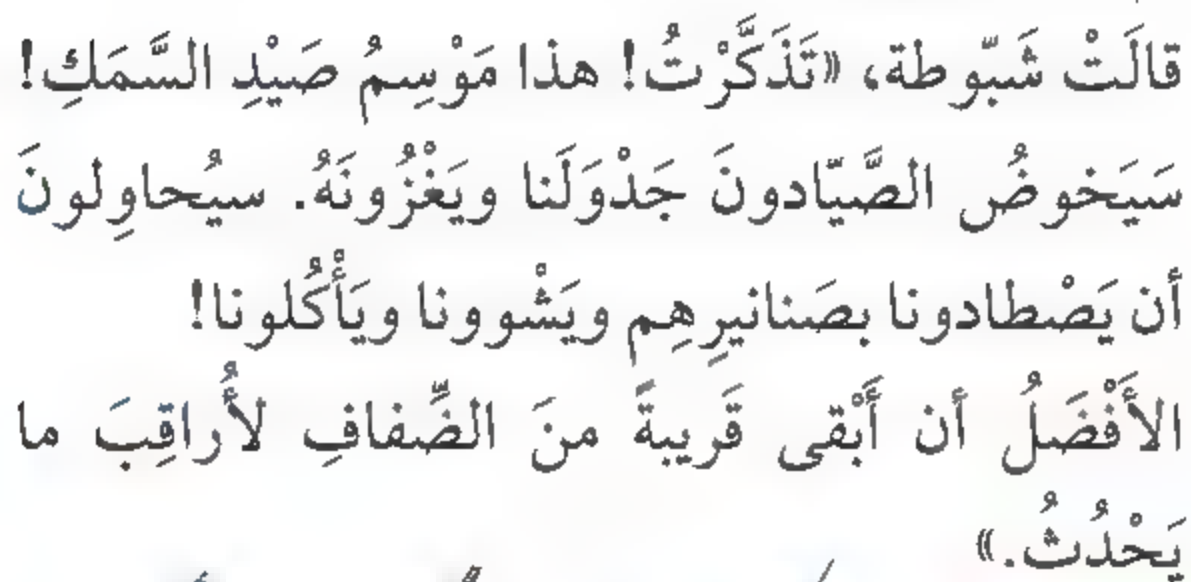 قالَتْ شَبّوطة، «تَذَكَّرْتُ! هذا مَوْسِمُ صَيْدِ السَّمَكِ!
سَيَخوضُ الصَّيّادونَ جَدْوَلَنا ويَغْزُونَهُ. سيُحاوِلونَ
أن يَصْطادونا بصَنانيرِهِم ويَشْوونا ويَأْكُلونا!
الأَفْضَلُ أن أَبْقى قَريبةً منَ الضِّفافِ لأُراقِبَ ما
يَحْدُثُ.»